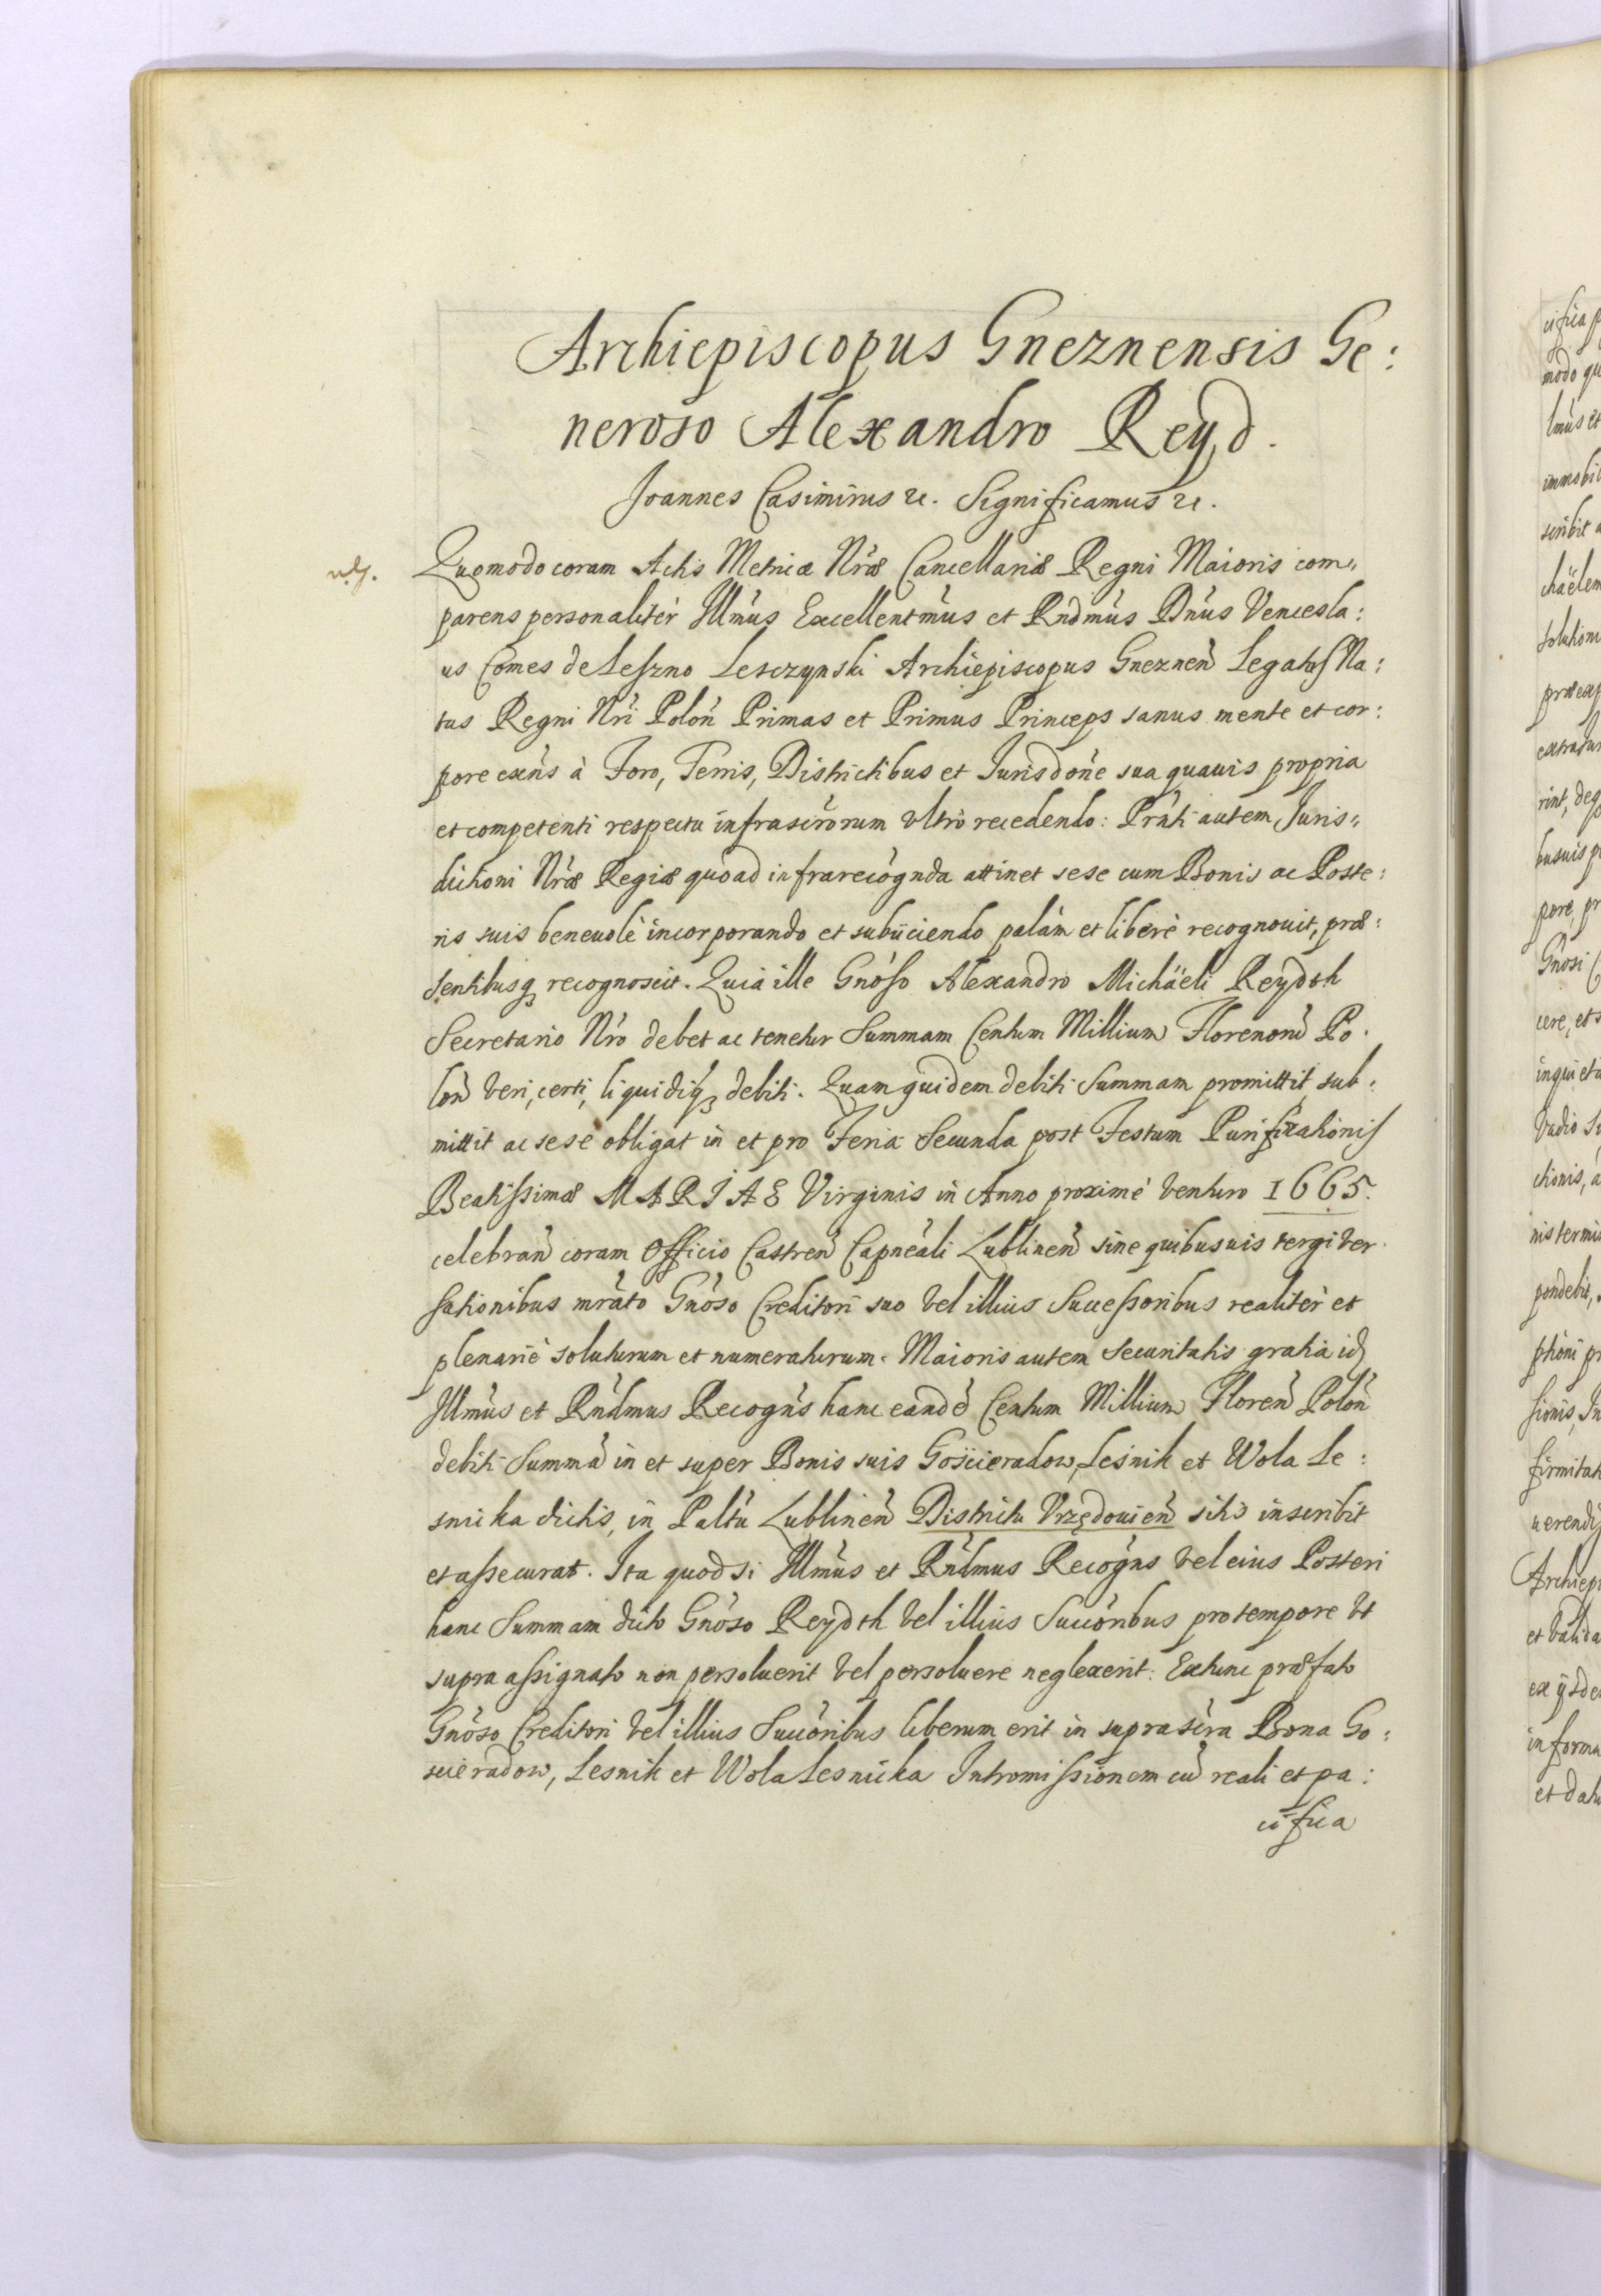 Archiepiscopus Gneznensis Ge:
neroso Alexandro Reyd.
Joannes Casimirus etc. Significamus etc.
Quomodo coram Actis Metricæ Nræ Cancellariæ Regni Maioris com„
parens personalitèr Illmus Excellentmus et Rndmus Dnus Vencesla:
us Comes de Leszno Lesczynski Archiepiscopus Gneznen Legatus Na:
tus Regni Nri Polon Primas et Primus Princeps sanus mente et cor:
pore exns à Foro, Terris, Districtibus et Jurisdone sua quauis propria
et competenti respectu infrascrorum vltrò recedendo: Prnti autem Juris„
dictioni Nræ Regiæ quòad infrarecognda attinet sese cum Bonis ac Poste:
ris suis beneuolè incorporando et subiiciendo palàm et liberè recognouit, præ:
sentibusq recognoscit. Quia ille Gnoso Alexandro Michäeli Reydth
Secretario Nro debet ac tenetur Summam Centum Millium Florenorũ Po.
lon veri, certi, liquidiq debiti. Quam quidem debiti Summam promittit, sub:
mittit ac sese obligat in et pro Feria Secunda post Festum Purificationis
Beatissimæ MARIAE Virginis in Anno proximè venturo 1665.
celebran coram Officio Castren Capneali Lublinen sine quibusuis tergiver
sationibus mrato Gnoso Creditori suo vel illius Successoribus realitèr et
plenariè soluturum et numeraturum. Maioris autem Securitatis gratia id
Illmus et Rndmus Recogns hanc eandẽ Centum Millium Floren Polon
debiti Summã in et super Bonis suis Gościeradow, Leśnik et Wola Le:
snicka dictis, in Paltu Lublinen Districtu Vrzędouien sitis inscribit
et assecurat. Ita quod si Illmus et Rndmus Recogns vel eius Posteri
hanc Summam dicto Gnoso Reydth vel illius Succoribus pro tempore vt
supra assignato non persoluerit vel persoluere neglexerit: Extunc præfato
Gnoso Creditori vel illius Succoribus liberum erit in suprascra Bona Go:
scieradow, Lesnik et Wola Lesnicka Intromissionem cũ reali et pa:
cifica